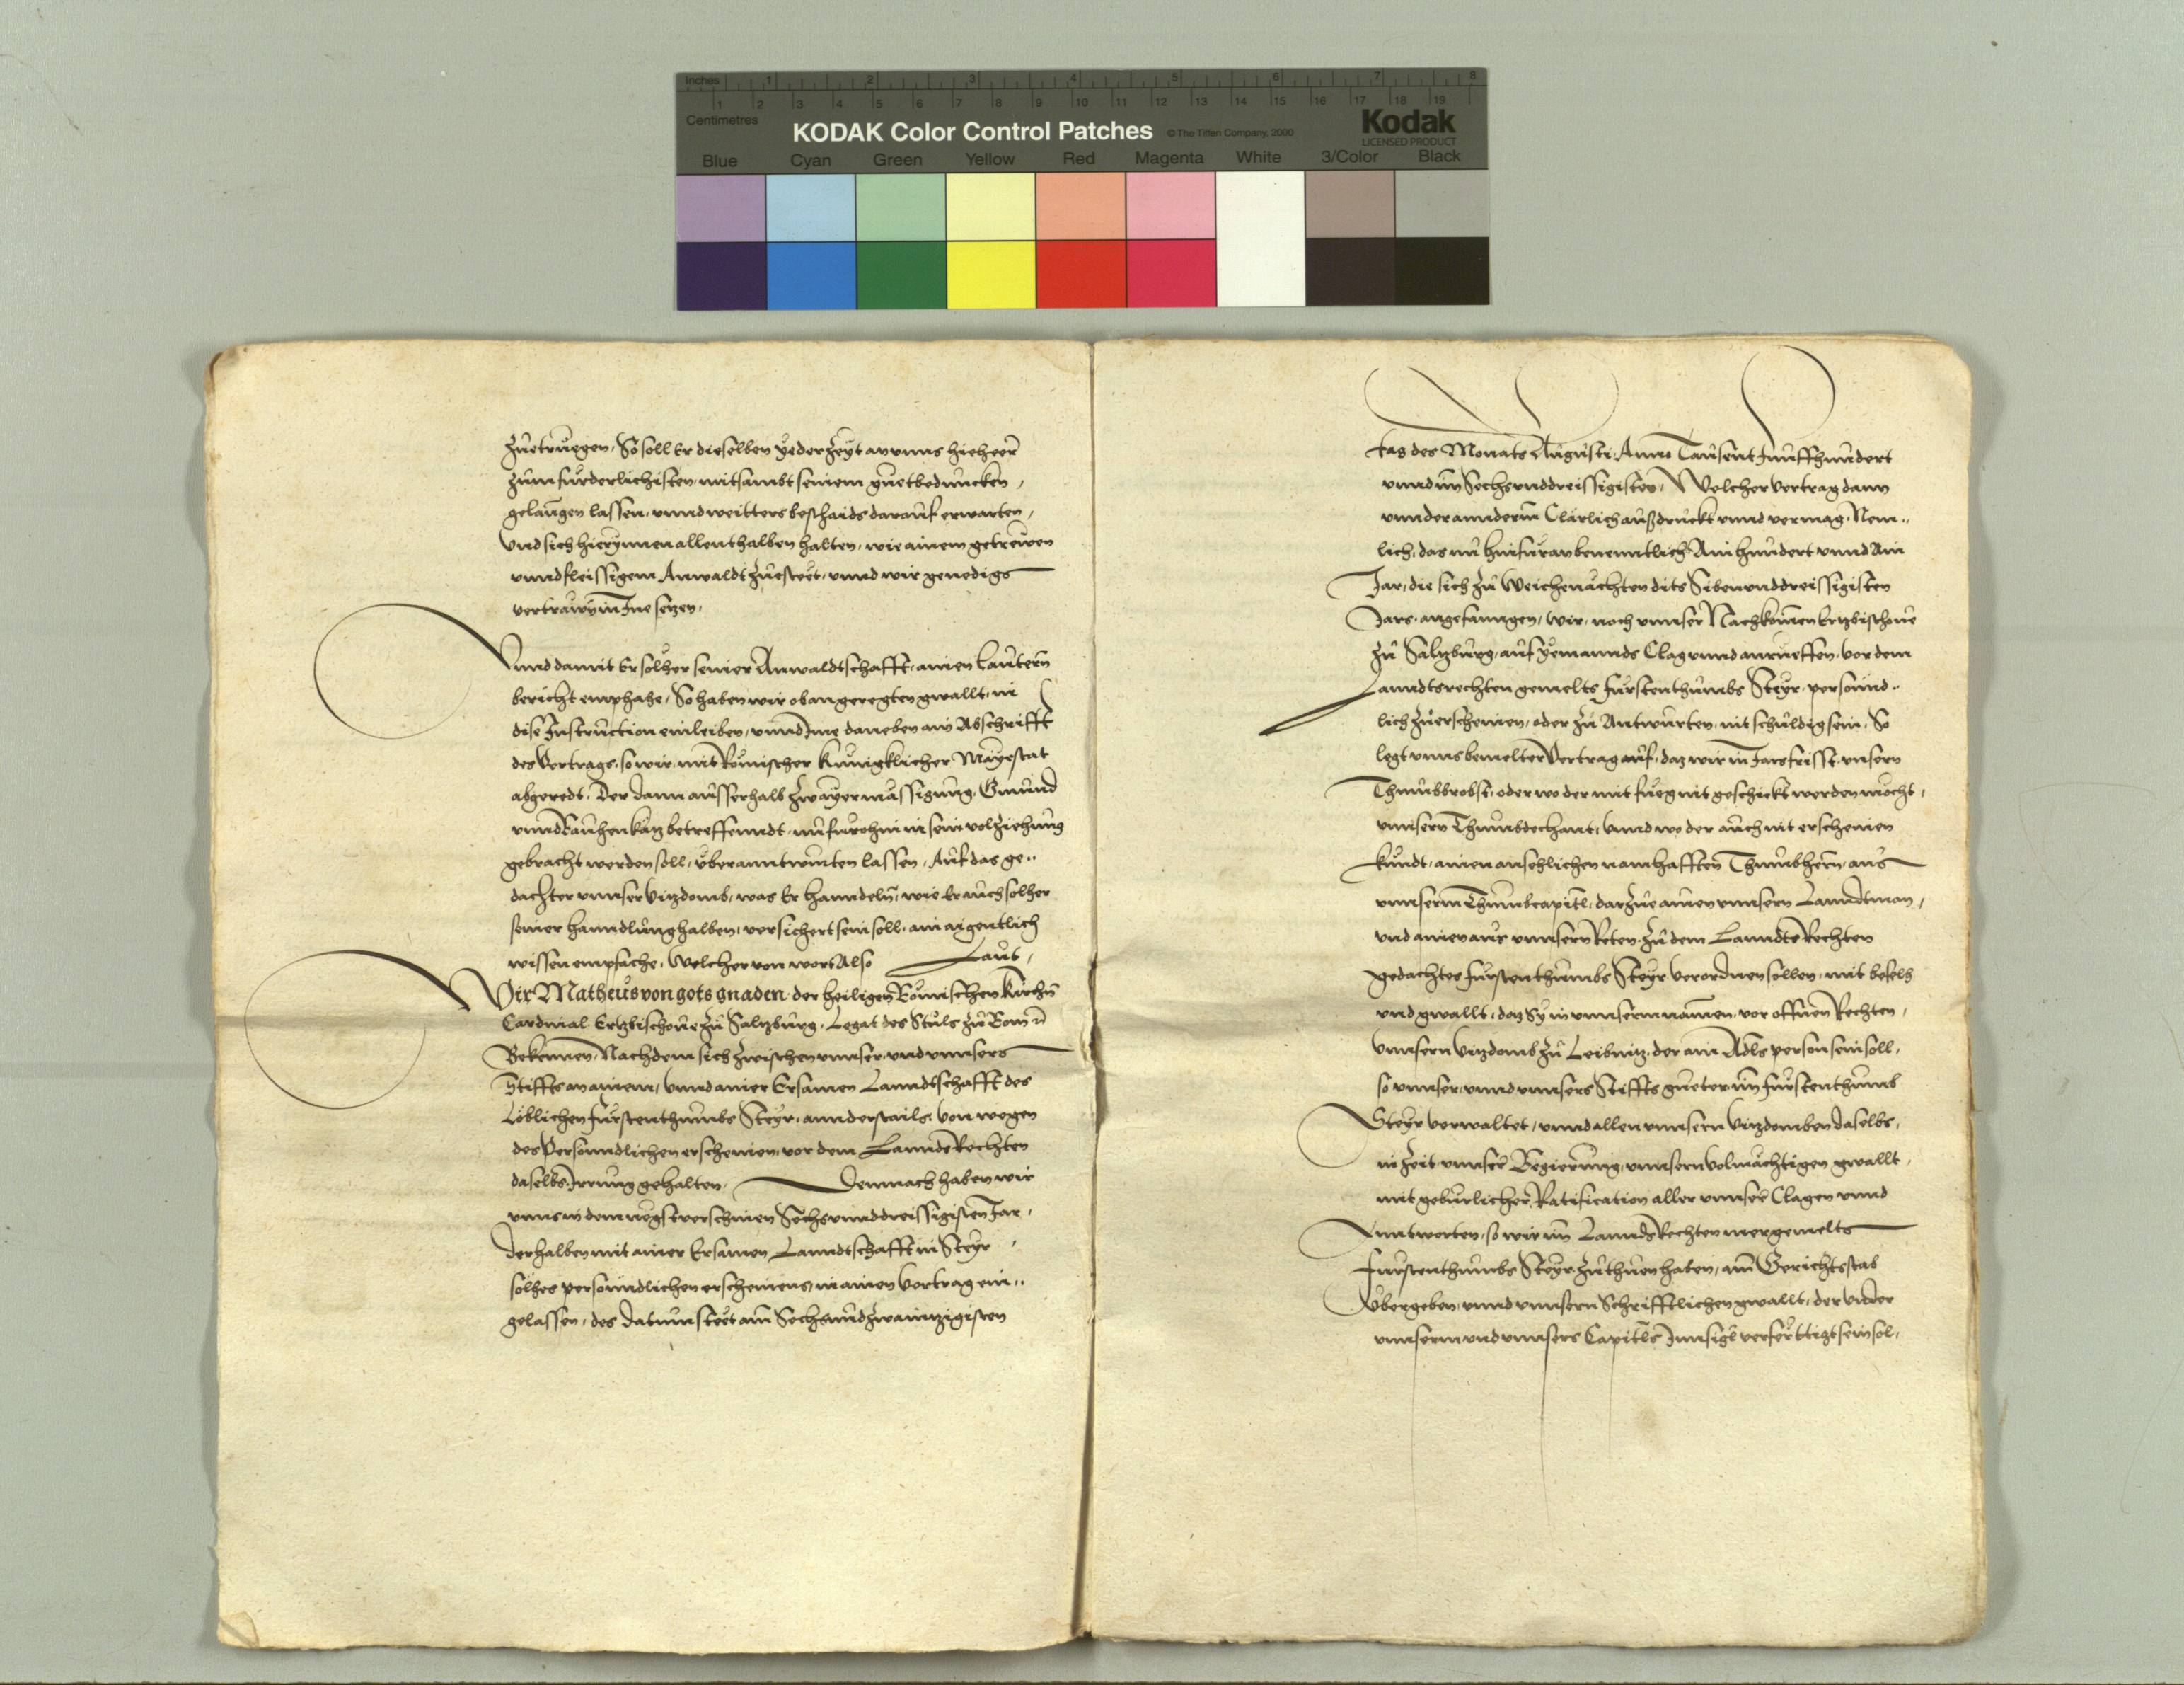 Inches 1 2 3 4 5 6 7 8
Centimetres 1 2 3 4 5 6 7 8 9 10 11 12 13 14 15 16 17 18 19
KODAK Color Control Patches © The Tiffen Company, 2000 Kodak
LICENSED PRODUCT
Blue Cyan Green Yellow Red Magenta White 3/Color Black
zůetrüegen, So soll Er dieselben yeder Zeyt an vnns hieheer
zům fürderlichisten, mitsambt seinem gůetbedůncken,
gelanngen lassen, vnnd weitters beschaids darauf erwarten,
Vnd sich hierynnen allenthalben halten, wie ainem getrewen
vnnd fleissigem Anwaldt zůesteet, vnnd wir genedigs
vertrawen in Ine setzen,
Vnnd damit Er solher seiner Anwaldtschafft, ainen lautern
bericht emphahe, So haben wir oban geregten gwallt, in
dise Instruction einleiben, vnnd Ime daneben ain Abschrifft
des Vertrags, so wir mit Römischer Kunigklicher Mayestat
abgeredt, Der dann ausserhalb zwayer mässigung, Gmünd
vnnd Rauhen Katz betreffenndt, nu furohin in sein volziehung
gebracht werden soll, vberanntwurten lassen, Auf das ge..
dachter vnnser Vitzdomb, was Er hanndeln, wie Er auch solher
seiner hanndlung halben, versichert sein soll, ain aigentlich
wissen empfache, Welcher von wort Also Laut,
Wir Matheus von gots gnaden der heiligen Römischen Kirchn
Cardinal Ertzbischoue zů Saltzburg, Legat des Stuls zů Rom
Bekennen, Nachdem sich zwischen vnnser, vnd vnnsers
Stiffts an ainem, Vnnd ainer Ersamen Lanndtschafft des
Löblichen Fürstenthumbs Steyr, annderstails, Von wegen
des Personndlichen erscheinen, vor dem Lannds Rechten
daselbs Irrung gehalten, Demnach haben wir
vnns in dem negstverschinen Sechsvnnddreissigisten Jar,
derhalben mit ainer Ersamen Lanndtschafft in Steyr
solhes personndlichen erscheinens, in ainen Vertrag ein..
gelassen, des datum steet am Sechsundzwaintzigisten
tag des Monats Augusti, Anno Tausent Funffhundert
vnnd im Sechsvnddreissigisten, Welcher Vertrag dann
vnnder annderm Clärlich außdruckt vnnd vermag, Nem..
lich, das nu hinfüran benenntlich Ain hundert vnnd Ain
Jar, die sich zů Weichenachten dits Sibenvnddreissigisten
Jars, angefanngen, wir, noch vnnser Nachkomen Ertzbischoue
zů Saltzburg, auf yemannds Clag vnnd anrueffen, vor dem
Lanndtsrechten gemelts Fürstenthumbs Steyr, personnd..
lich zůerscheinen, oder zů Antwurten, nit schuldig sein, So
legt vnns bemelter Vertrag auf, daz wir in Jars frisst, vnsern
Thumbbrobst, oder wo der mit fueg nit geschickt werden möcht,
vnnsern Thumbdechant, Vnnd wo der auch nit erscheinen
kundt, ainen ansehlichen namhafften Thumbhern, aus
vnnserm Thumbcapitl, darzůe ainen vnnsern Lanndtman,
vnd ainen aus vnnsern Reten, zů dem Lanndts Rechten
gedachtes fürstenthumbs Steyr verordnen sollen, mit befelh
vnd gwallt, daz Sy in vnnserm namen, vor offnen Rechten,
Vnnsern Vitzdomb zů Leibnitz, der ain Adls person sein soll,
so vnnser, vnnd vnnsers Stiffts gueter im Fürstenthumb
Steyr verwaltet, vnnd allen vnnsern Vitzdomben daselbs,
in Zeit vnnser Regierung, vnnsern volmächtigen gwallt,
mit gebürlicher Ratification aller vnnser Clagen vnnd
Anntworten, so wir im Lannds Rechten mergemelts
Fürstenthumbs Steyr zů thuen haben, am Gerichtsstab
Vbergeben, vnnd vnnsern Schrifftlichen gwallt, der vnder
vnnserm vnd vnnsers Capitls Innsigl verferttigt sein sol,